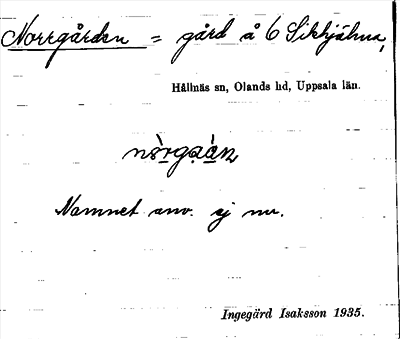 Norrgården = gård å 6 Sikhjälma,
Hållnäs sn, Olands hd, Uppsala län.
Namnet anv. ej nu.
Ingegärd Isaksson 1935.